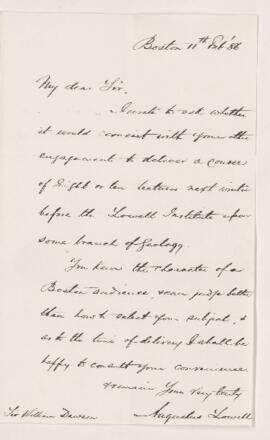 Boston 11th Feb '86
My dear Sir.
I write to ask whether
it would consist with your other
engagements to deliver a course
of Eight or ten lectures next winter
before the Lowell Institute upon
some branch of Geology.
You know the character of a
Boston audience, & can judge better
than I how to select your subject, &
as to the time of delivery I shall be
happy to consult your convenience
& remain Yours very truly
Augustus Lowell
Sir William Dawson